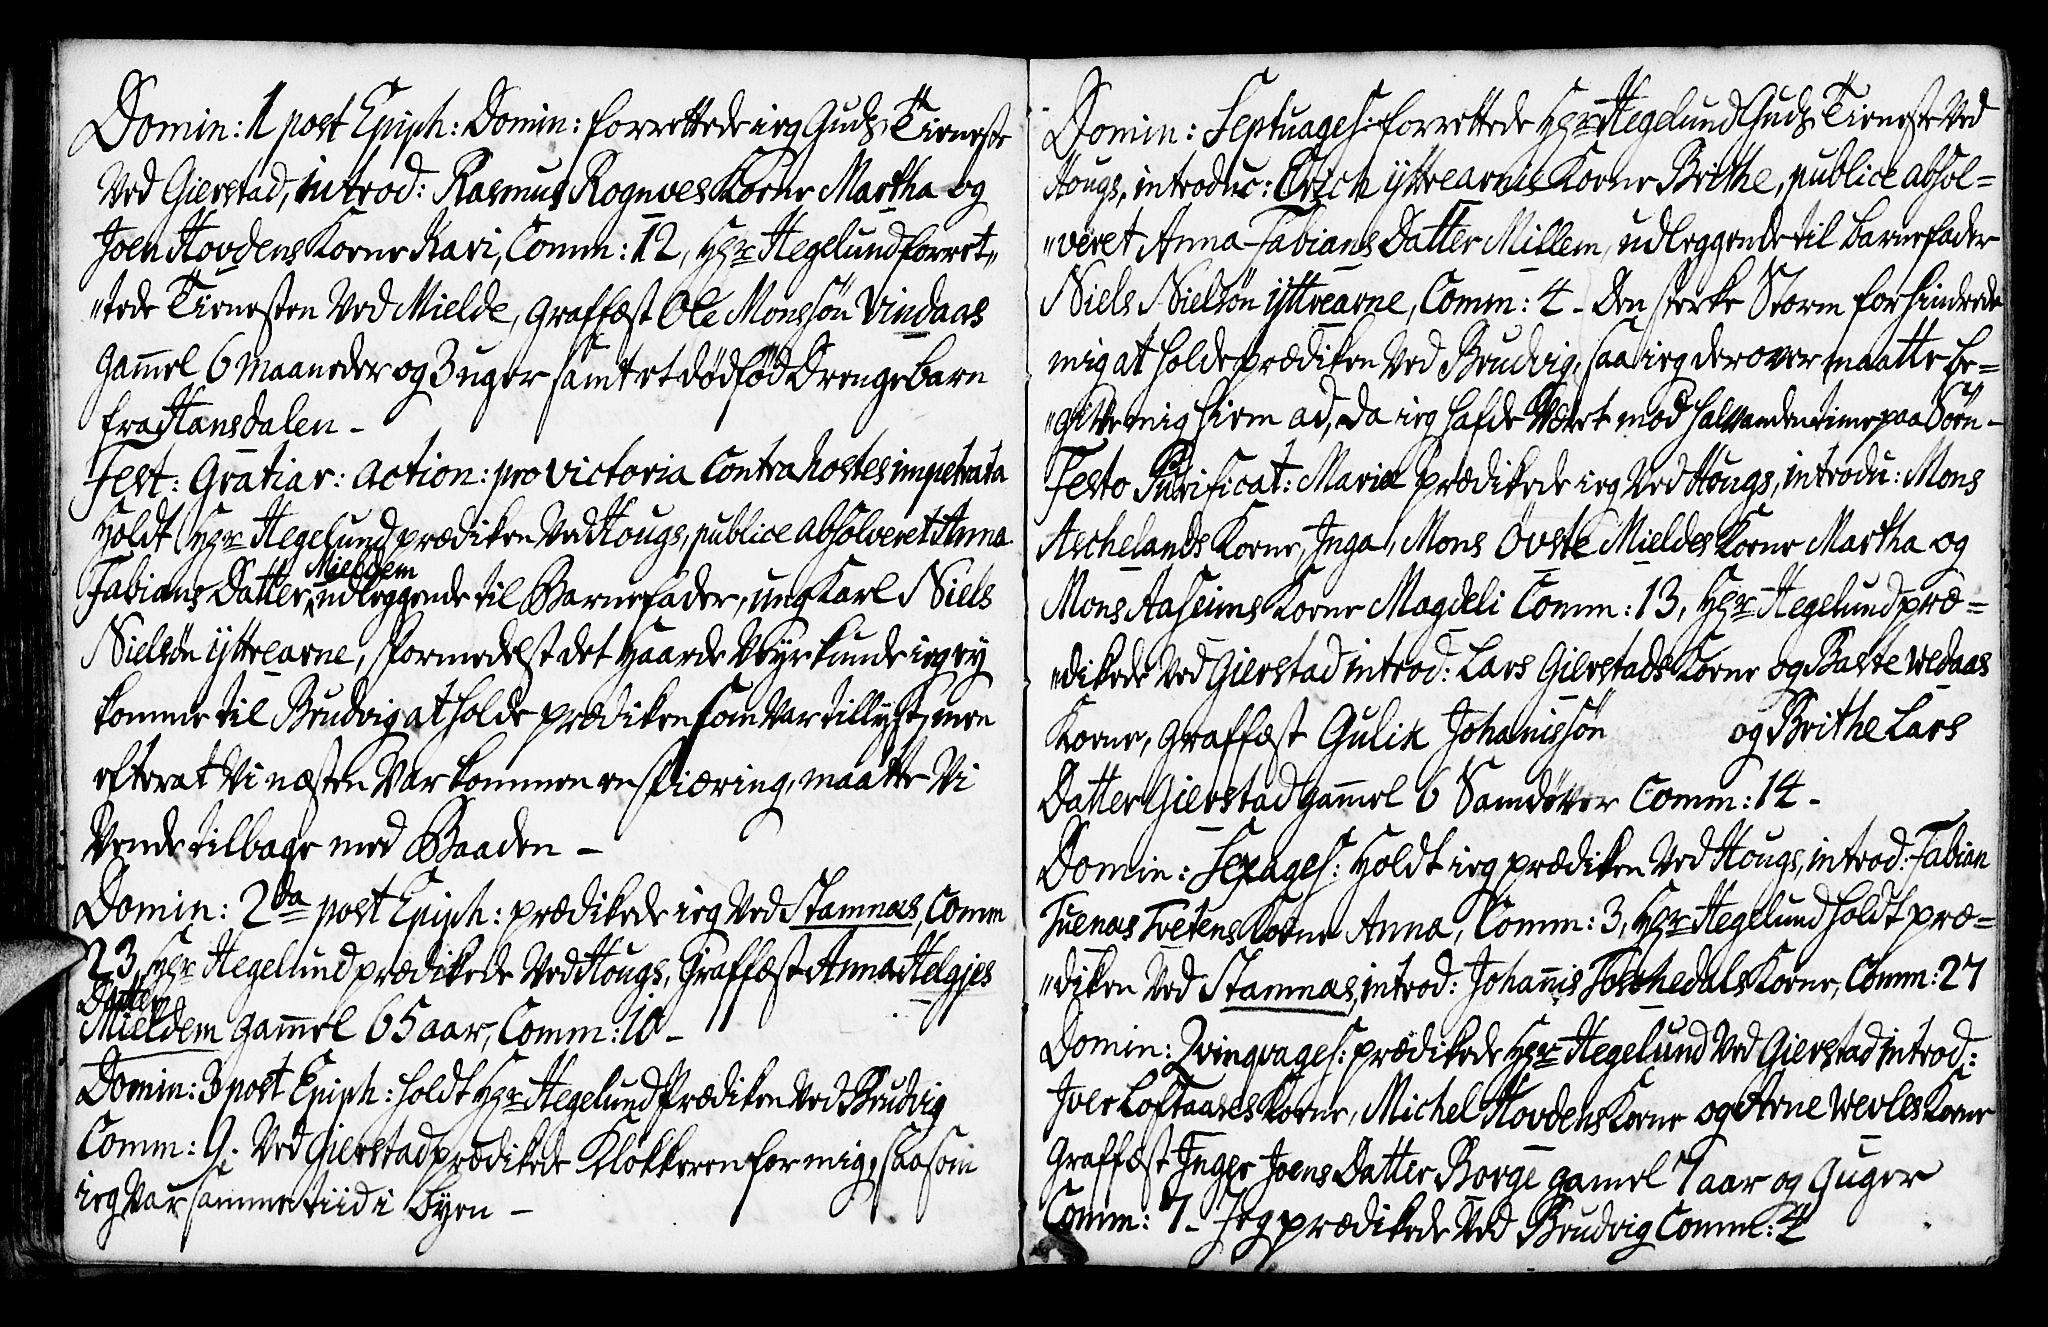 Domin: 1 post Epiph: Domin: forrettede ieg Guds Tieneste
Ved Gierstad, introd: Rasmus Rognves Kone Martha og
Joen Hovdens Kone Kari, Comm: 12, Hgr Hegelund forret„
„tede Tienesten Ved Mielde, graffæst Ole Monssön Vindaas
gam̄el 6 maaneder og 3 uger samt et dödföd Drengebarn
fra Hansdalen –
Fest: Gratiar: action: pro victoria contra hostes impetrata
Holdt Hgr Hegelund prædiken Ved Hougs, publice absolveret Anna
Mieldem
Fabians Datter, udleggende til Barnefader, ung Karl Niels
Nielsön ÿttrearne, formedelst det haarde Veyr kunde ieg ey
komme til Brudvig at holde prædiken som Var tillyst, men
efterat Vi næsten Var kommen en fiæring, maatte Vi
Vende tilbage med Baaden –
Domin: 2da post Epiph: prædikede ieg Ved Stamnæs, Comm
23, Hgr Hegelund prædikede Ved Hougs, Graffæst Anna Helgjes
Datter
Mieldem gam̄el 65 aar, Comm: 10 –
Domin: 3 post Epiph: holdt Hgr Hegelund Prædiken Ved Brudvig
Comm: 9. Ved Gierstad prædikede Klokkeren for mig, saasom
ieg Var samme tiid i byen –
Domin: Septuages: forrettede Hgr Hegelund Guds Tieneste Ved
Hougs, introduc: Erich ÿttrearnes Kone Brithe, publice absol=
„veret Anna Fabians Datter Mitlem, udleggende til barnefader
Niels Nielsön ÿttrearne, Comm: 4 – Den sterke Storm forhindrede
mig at holde prædiken Ved Brudvig, saa ieg derover maatte be=
„give mig hiem ad, da ieg hafde Været mod halvanden time paa Söen –
Festo Purificat: Mariæ prædikede ieg Ved Hougs, introdu: Mons
Aschelands Kone, Inga, Mons Övste Mieldes Kone Martha og
Mons Aaseims Kone Magdeli Comm: 13, Hgr Hegelund præ=
„dikede Ved Gierstad introd: Lars Gierstads Kone og Baste Wedaas
Kone, graffæst Gulik Johan̄issön og Brithe Lars
Datter Gierstad gam̄el 6 Samdöger Comm: 14 –
Domin: Sexages: Holdt ieg prædiken Ved Hougs, introd: Fabian
Tuenæs Tvetens Kone Anna, Comm: 3, Hgr Hegelund holdt præ=
„diken Ved Stamnæs, introd: Johan̄is Toschedals Kone, Comm: 27
Domin: Qvinqvages: prædikede Hgr Hegelund Ved Gierstad introd:
Iver Loftaaes Kone, Michel Hovdens Kone og Arne Wevles Kone
Graffæst Inger Joens Datter Borge gamel 7 aar og 9 uger
Comm: 7 – Jeg prædikede Ved Brudvig Comm: 4